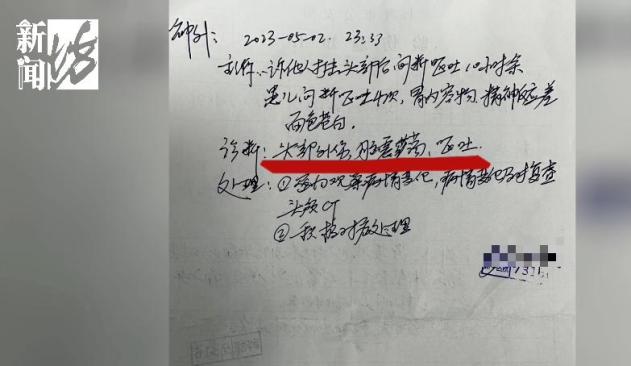 新闻坊
神外: 2023-05-02. 23:33
主诉: 诉他人打击头部后间断呕吐10小时余
患儿间断呕吐4次, 胃内容物, 精神反应差
面色苍白.
诊断: 头部外伤, 脑震荡, 呕吐
处理: ①密切观察病情变化, 病情变化及时复查
头颅CT
②积极对症处理